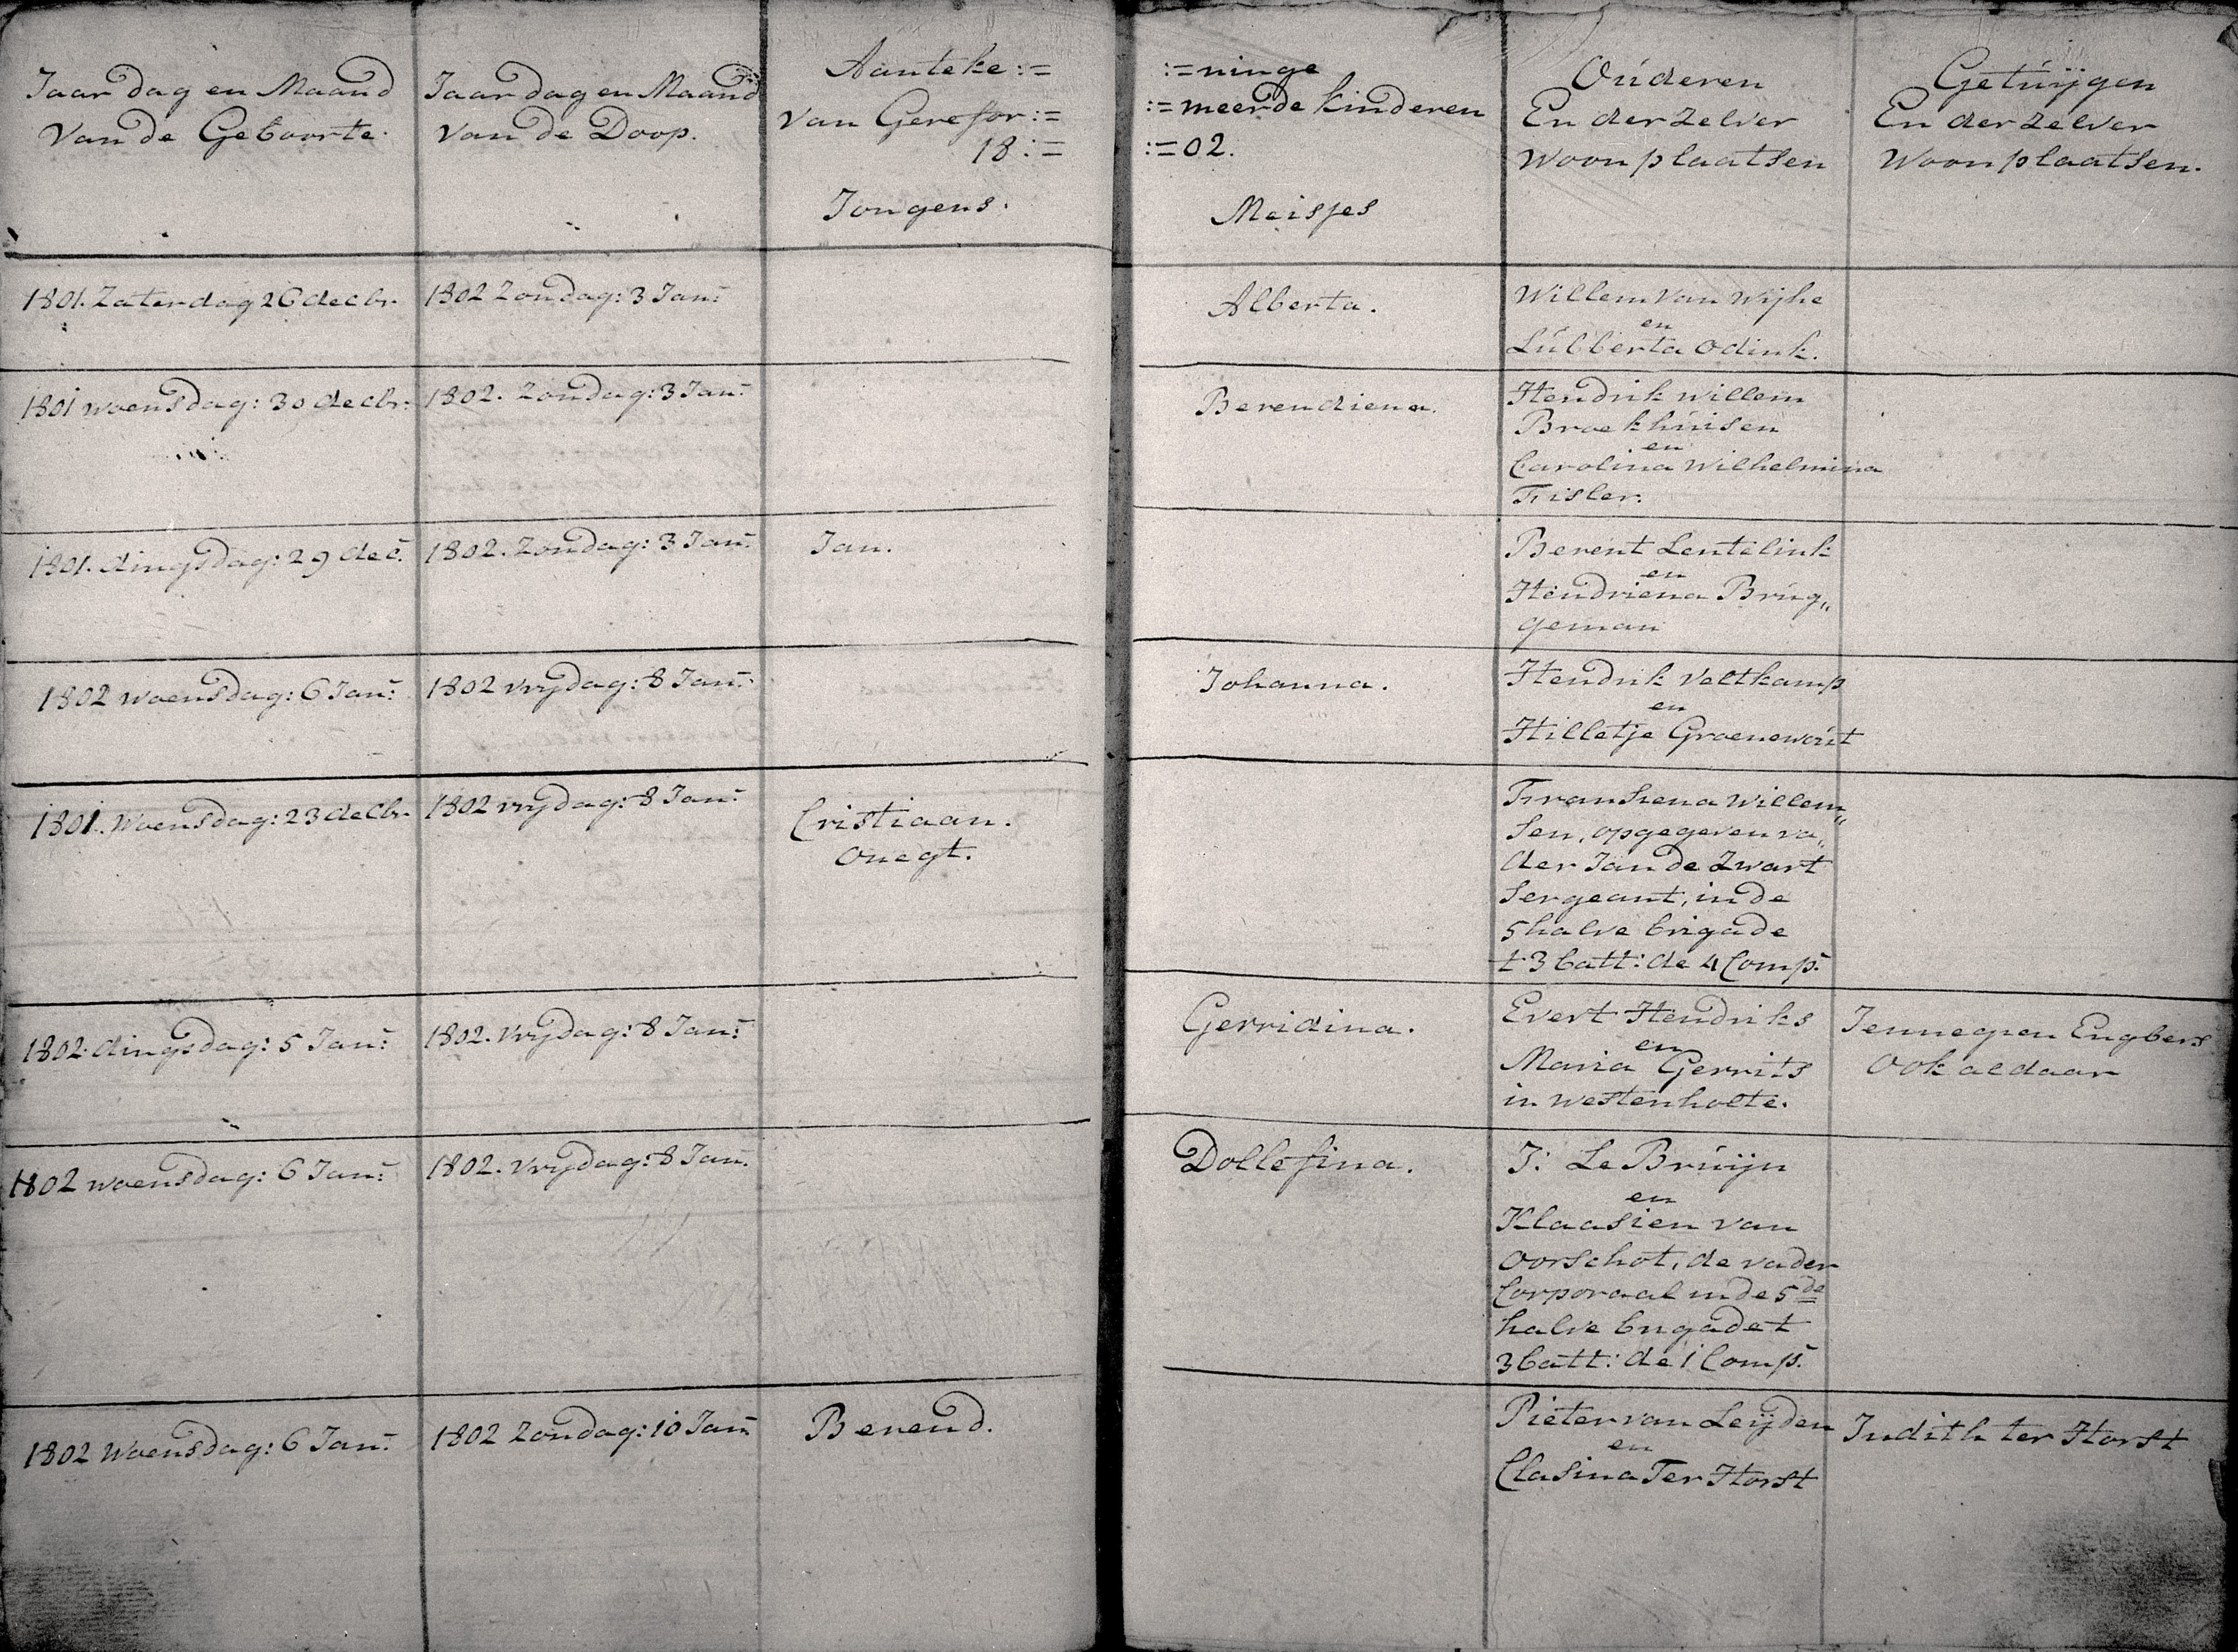 Jaar dag en Maand
van de Geboorte.
Jaar dag en Maand
van de Doop.
Aanteke:=
van Gerefor:=
18:=
Jongens.
:=ninge
:=meerde kinderen
:=02.
Meisjes
Oúderen
En der Zelver
Woonplaatsen
Getúijgen
En der Zelver
Woonplaatsen.
1801. Zaterdag 26 decbr.
1802 Zondag: 3 Jan:
Alberta.
Willem van Wijhe
en
Lúbberta Odink.
1801 woensdag: 30 decbr:
1802. Zondag: 3 Jan:
Berendiena.
Hendrik Willem
Broekhúisen
en
Carolina Wilhelmina
Fisler.
1801. dingsdag: 29 dec.
1802. Zondag: 3 Jan:
Jan.
Berent Lentelink
en
Hendriena Brúg„
geman
1802 woensdag: 6 Jan:
1802 vrydag: 8 Jan:
Johanna.
Hendrik Veltkamp
en
Hilletje Groenewoút
1801. Woensdag: 23 decbr.
1802 vrydag: 8 Jan:
Cristiaan.
onegt.
Fransiena Willem„
sen, opgegeven va„
der Jan de Zwart
Sergeant, in de
5 halve brigade
t 3 batt: de 4 Comp:
1802. dingsdag: 5 Jan:
1802. vrydag: 8 Jan:
Gerridina.
Evert Hendriks
en
Maria Gerrits
in westenholte.
Jennegien Engbers
Ook aldaar
1802 woensdag: 6 Jan:
1802. vrydag: 8 Jan.
Dollefina.
J: Le Brúijn
en
Klaasien van
Oorschot, de vader
Corporaal in de 5de
halve brigade t
3 batt: de 1 Comp:
1802 Woensdag: 6 Jan:
1802 Zondag: 10 Jan:
Berend.
Pieter van Leijden
en
Clasina Ter Horst
Judith ter Horst